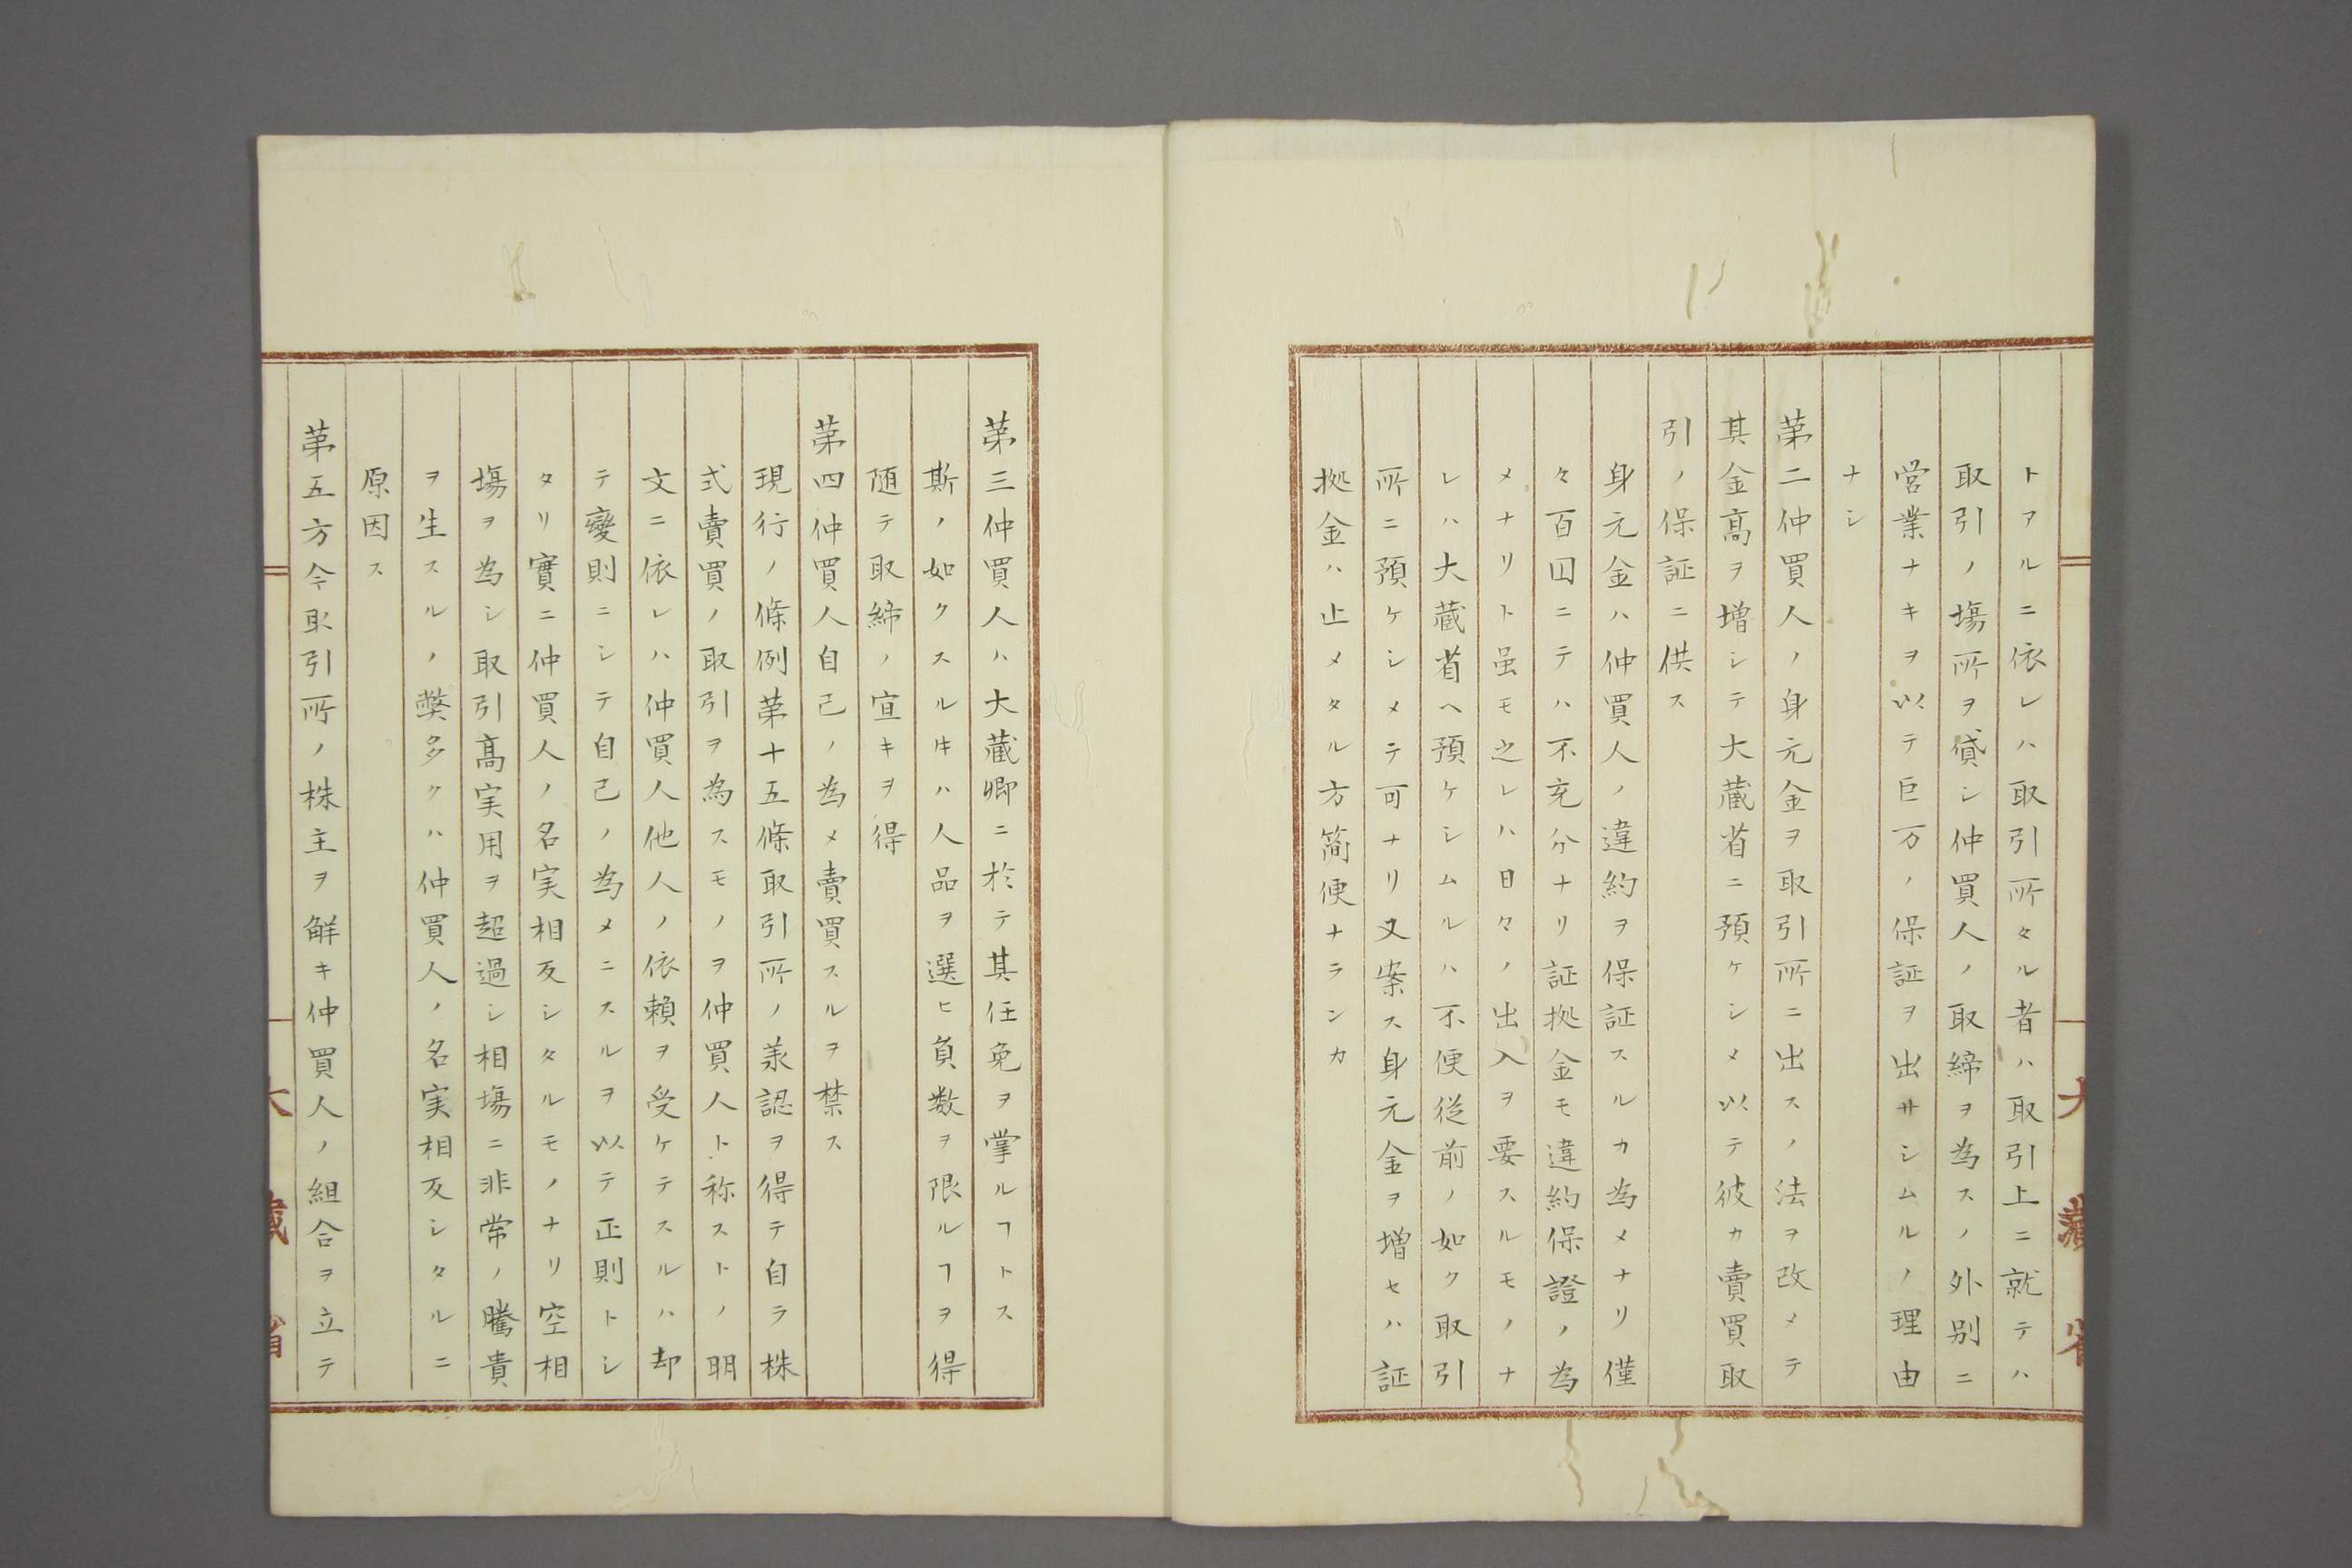 トアルニ依レハ取引所タル者ハ取引上ニ就テハ
取引ノ塲所ヲ貸シ仲買人ノ取締ヲ為スノ外別ニ
営業ナキヲ以テ巨万ノ保証ヲ出サシムルノ理由
ナシ
苐二仲買人ノ身元金ヲ取引所ニ出スノ法ヲ改メテ
其金髙ヲ増シテ大蔵省ニ預ケシメ以テ彼カ賣買取
引ノ保証ニ供ス
身元金ハ仲買人ノ違約ヲ保証スルカ為メナリ僅
々百囗ニテハ不充分ナリ証拠金モ違約保證ノ為
メナリト虽モ之レハ日々ノ出入ヲ要スルモノナ
レハ大蔵省ヘ預ケシムルハ不便従前ノ如ク取引
所ニ預ケシメテ可ナリ又案ス身元金ヲ増セハ証
拠金ハ止メタル方简便ナランカ
苐三仲買人ハ大蔵卿ニ於テ其任免ヲ掌ルヿトス
斯ノ如クスルヰハ人品ヲ選ヒ負数ヲ限ルヿヲ得
随テ取締ノ宣キヲ得
苐四仲買人自己ノ為メ賣買スルヲ禁ス
現行ノ條例苐十五條取引所ノ羕認ヲ得テ自ラ株
式賣買ノ取引ヲ為スモノヲ仲買人ト称ストノ明
文ニ依レハ仲買人他人ノ依頼ヲ受ケテスルハ却
テ變則ニシテ自己ノ為メニスルヲ以テ正則トシ
タリ實ニ仲買人ノ名実相反シタルモノナリ空相
塲ヲ為シ取引髙実用ヲ超過シ相塲ニ非常ノ騰貴
ヲ生スルノ獘多クハ仲買人ノ名実相反シタルニ
原因ス
苐五方今取引所ノ株主ヲ觧キ仲買人ノ組合ヲ立テ
大蔵省
大藏省